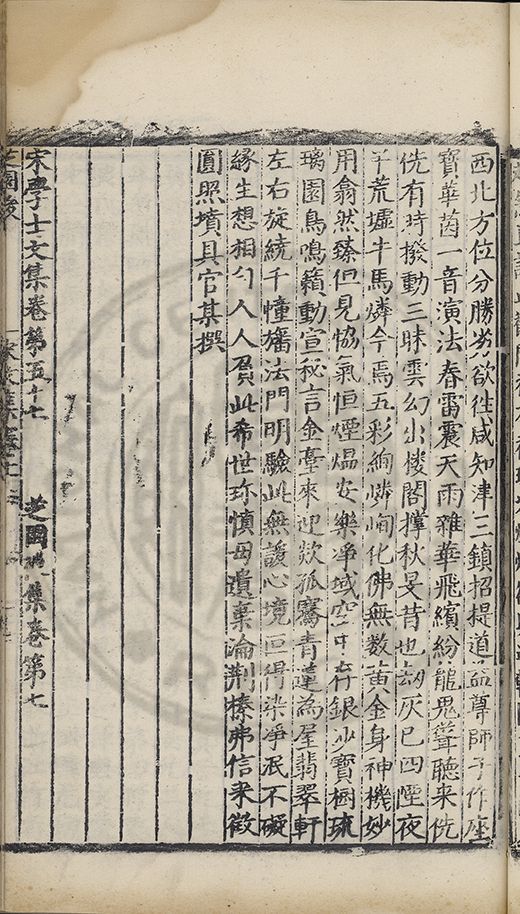 西北方位分勝劣欲徃咸知津三鎮招提道益尊師予作座
寶華茵一音演法春雷震天雨雜華飛繽紛龍鬼聳聽來侁
侁有時撥動三昧雲幻出楼閣撑秋旻昔也刼灰巳四煙夜
荒墟牛馬燐今焉五彩絢嶙峋化佛無数黄金身神機妙
用翕然臻但見恊氣恒煙熅安樂淨域空中存銀沙寶樹琉
璃園鳥鳴籟動宣秘言金臺來迎欻孤騫青蓮為屋翡翠軒
左右旋繞千幢旛法門明驗此無諼心境叵得染淨泯不礙
緣生想相勻人人具此希世珎慎毋遺棄淪荆榛弗信来徵
圓照墳具官某撰
宋學士文集卷第五十七 芝園集卷第七